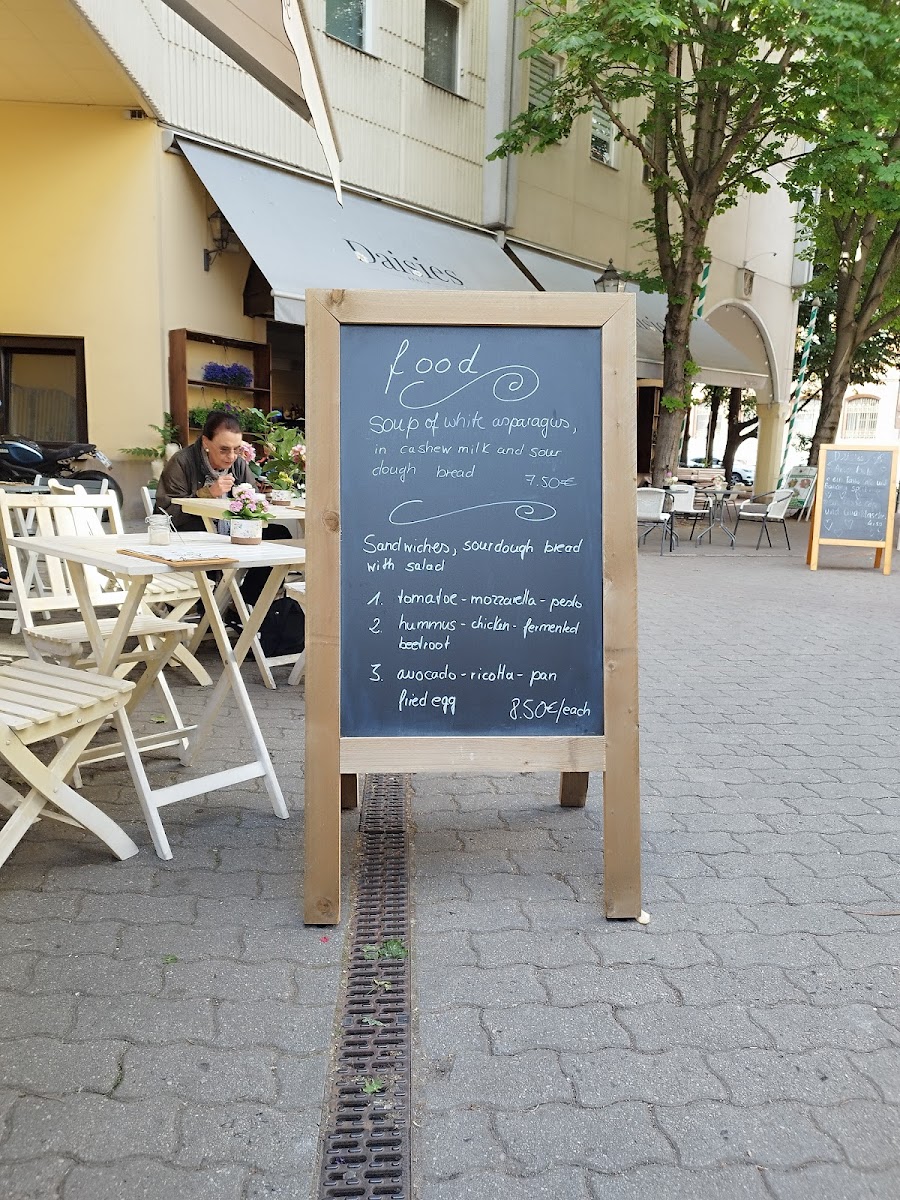 Daisies
food
soup of white asparagus,
in cashew milk and sour
dough bread
7.50€
Sandwiches, sourdough bread
with salad
1. tomatoe - mozzarella - pesto
2. hummus - chicken - fermented
beetroot
3. avocado - ricotta - pan
fried egg
8.50€/each
und